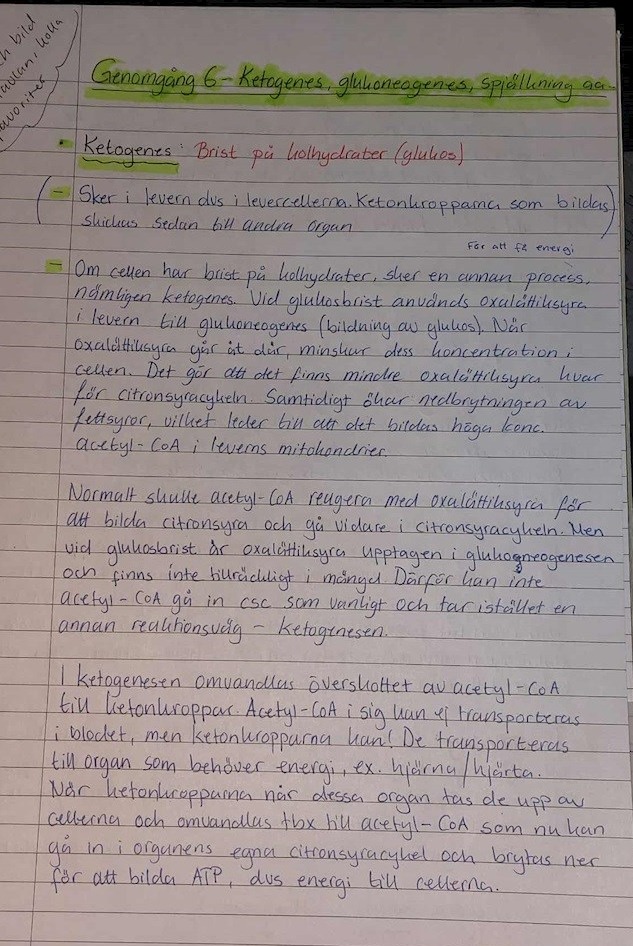 ch bild
tavlan, kolla
favoriter
Genomgång 6 - Ketogenes, glukoneogenes, spjälkning aa.
Ketogenes: Brist på kolhydrater (glukos)
( - Sker i levern dvs i levercellerna. Ketonkropparna som bildas)
skickas sedan till andra organ
För att få energi
- Om cellen har brist på kolhydrater, sker en annan process,
nämligen ketogenes. Vid glukosbrist används oxalättiksyra
i levern till glukoneogenes (bildning av glukos). När
oxalättiksyra går åt där, minskar dess koncentration i
cellen. Det gör att det finns mindre oxalättiksyra kvar
för citronsyracykeln. Samtidigt ökar nedbrytningen av
fettsyror, vilket leder till att det bildas höga konc.
acetyl-CoA i leverns mitokondrier.
Normalt skulle acetyl-CoA reagera med oxalättiksyra för
att bilda citronsyra och gå vidare i citronsyracykeln. Men
vid glukosbrist är oxalättiksyra upptagen i glukoneogenesen
och finns inte tillräckligt i mängd Därför kan inte
acetyl-CoA gå in csc som vanligt och tar istället en
annan reaktionsväg - ketogenesen.
I ketogenesen omvandlas överskottet av acetyl-CoA
till ketonkroppar. Acetyl-CoA i sig kan ej transporteras
i blodet, men ketonkropparna kan! De transporteras
till organ som behöver energi, ex. hjärna/hjärta.
När ketonkropparna når dessa organ tas de upp av
cellerna och omvandlas tbx till acetyl-CoA som nu kan
gå in i organens egna citronsyracykel och brytas ner
för att bilda ATP, dvs energi till cellerna.